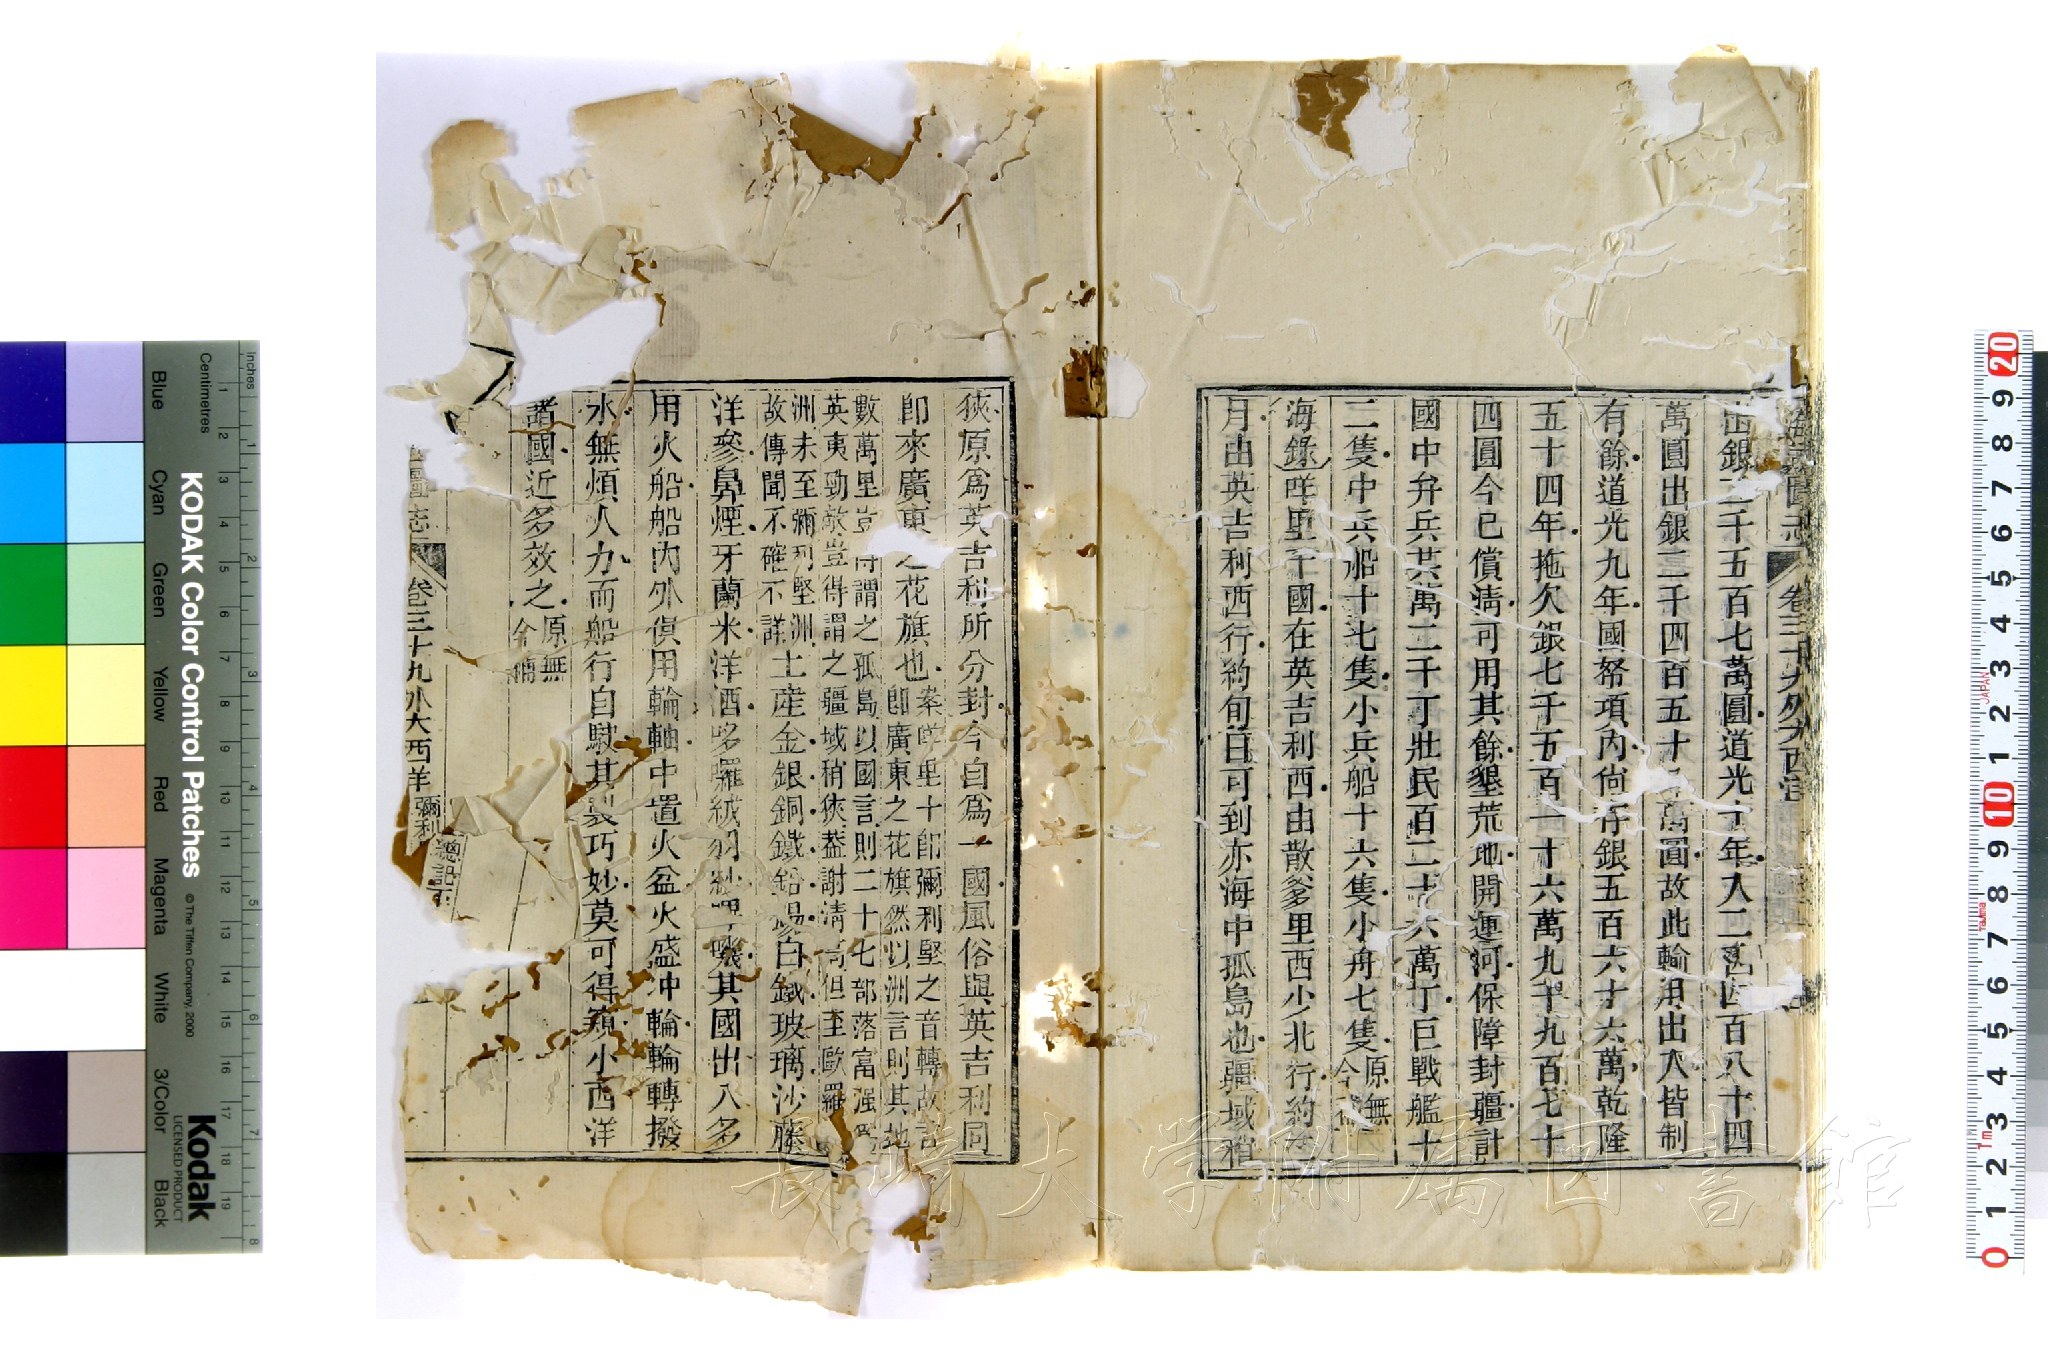 海國圖志 卷三十九外大西洋
出銀二千五百七萬圓道光十年入二千四百八十四
萬圓出銀二千四百五十 萬圓故此輸用出入皆制
有餘道光九年國帑項內尙存銀五百六十六萬乾隆
五十四年拖欠銀七千五百一十六萬九千九百七十
四圓今已償淸可用其餘墾荒地開運河保障封疆計
國中弁兵共萬二千丁壯民百二十六萬丁巨戰艦十
二隻中兵船十七隻小兵船十六隻小舟七隻原無今補
海錄咩里干國在英吉利西由散爹里西少北行約
月由英吉利西行約旬日可到亦海中孤島也疆域稍
狹原爲英吉利所分封今自爲一國風俗與英吉利同
卽來廣東之花旗也案咩里干卽彌利堅之音轉故
卽廣東之花旗然以洲言則其地
數萬里豈得謂之孤島以國言則二十七部落富强
英夷勁敵豈得謂之疆域稍狹葢謝淸高但至歐羅
洲未至彌利堅洲
故傳聞不確不詳土產金銀銅鐵鉛錫白鐵玻璃沙藤
洋參鼻煙牙蘭米洋酒哆囉絨羽紗嗶嘰其國出入多
用火船船內外俱用輪軸中置火盆火盛冲輪輪轉撥
水無煩人力而船行自駛其製巧妙莫可得窺小西洋
諸國近多效之原無今補
國圖志 卷三十九外大西洋 彌利 總記
KODAK Color Control Patches
© The Tiffen Company, 2000
Kodak
LICENSED PRODUCT
Inches 1 2 3 4 5 6 7 8
Centimetres 1 2 3 4 5 6 7 8 9 10 11 12 13 14 15 16 17 18 19
Blue Cyan Green Yellow Red Magenta White 3/Color Black
20 9 8 7 6 5 4 3 2 1 10 9 8 7 6 5 4 3 2 1 0
JAPAN
TAJIMA
1m
長崎大学附属図書館